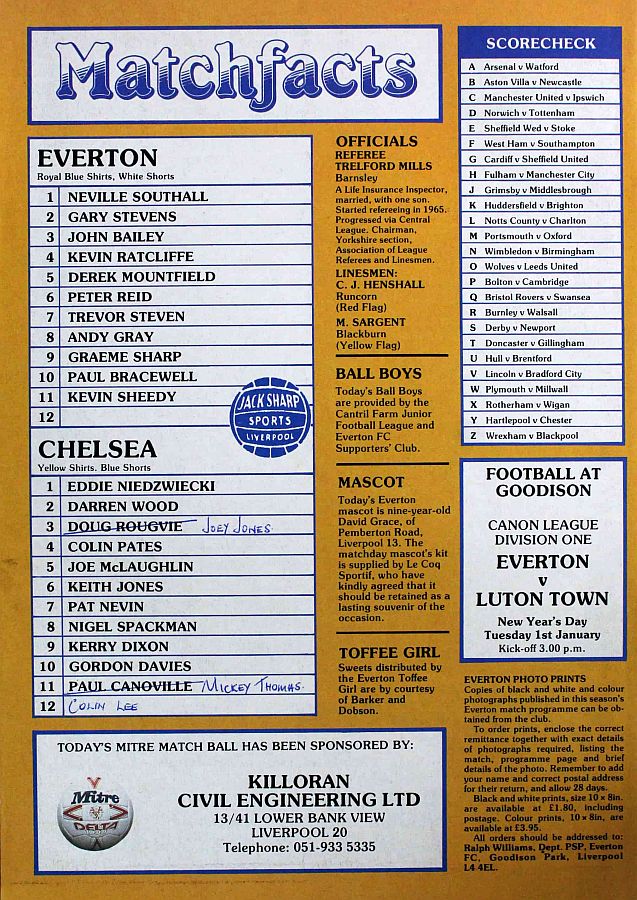 Matchfacts
EVERTON
Royal Blue Shirts, White Shorts
1 NEVILLE SOUTHALL
2 GARY STEVENS
3 JOHN BAILEY
4 KEVIN RATCLIFFE
5 DEREK MOUNTFIELD
6 PETER REID
7 TREVOR STEVEN
8 ANDY GRAY
9 GRAEME SHARP
10 PAUL BRACEWELL
11 KEVIN SHEEDY
12
JACK SHARP
SPORTS
LIVERPOOL
CHELSEA
Yellow Shirts. Blue Shorts
1 EDDIE NIEDZWIECKI
2 DARREN WOOD
3 DOUG ROUGVIE JOEY JONES.
4 COLIN PATES
5 JOE McLAUGHLIN
6 KEITH JONES
7 PAT NEVIN
8 NIGEL SPACKMAN
9 KERRY DIXON
10 GORDON DAVIES
11 PAUL CANOVILLE MICKEY THOMAS.
12 COLIN LEE
OFFICIALS
REFEREE
TRELFORD MILLS
Barnsley
A Life Insurance Inspector,
married, with one son.
Started refereeing in 1965.
Progressed via Central
League. Chairman,
Yorkshire section,
Association of League
Referees and Linesmen.
LINESMEN:
C. J. HENSHALL
Runcorn
(Red Flag)
M. SARGENT
Blackburn
(Yellow Flag)
BALL BOYS
Today's Ball Boys
are provided by the
Cantril Farm Junior
Football League and
Everton FC
Supporters' Club.
MASCOT
Today's Everton
mascot is nine-year-old
David Grace, of
Pemberton Road,
Liverpool 13. The
matchday mascot's kit
is supplied by Le Coq
Sportif, who have
kindly agreed that it
should be retained as a
lasting souvenir of the
occasion.
TOFFEE GIRL
Sweets distributed by
the Everton Toffee
Girl are by courtesy
of Barker and
Dobson.
SCORECHECK
A Arsenal v Watford
B Aston Villa v Newcastle
C Manchester United v Ipswich
D Norwich v Tottenham
E Sheffield Wed v Stoke
F West Ham v Southampton
G Cardiff v Sheffield United
H Fulham v Manchester City
J Grimsby v Middlesbrough
K Huddersfield v Brighton
L Notts County v Charlton
M Portsmouth v Oxford
N Wimbledon v Birmingham
O Wolves v Leeds United
P Bolton v Cambridge
Q Bristol Rovers v Swansea
R Burnley v Walsall
S Derby v Newport
T Doncaster v Gillingham
U Hull v Brentford
V Lincoln v Bradford City
W Plymouth v Millwall
X Rotherham v Wigan
Y Hartlepool v Chester
Z Wrexham v Blackpool
FOOTBALL AT
GOODISON
CANON LEAGUE
DIVISION ONE
EVERTON
v
LUTON TOWN
New Year's Day
Tuesday 1st January
Kick-off 3.00 p.m.
EVERTON PHOTO PRINTS
Copies of black and white and colour
photographs published in this season's
Everton match programme can be ob-
tained from the club.
To order prints, enclose the correct
remittance together with exact details
of photographs required, listing the
match, programme page and brief
details of the photo. Remember to add
your name and correct postal address
for their return, and allow 28 days.
Black and white prints, size 10 x 8in.
are available at £1.80, including
postage. Colour prints, 10 x 8in, are
available at £3.95.
All orders should be addressed to:
Ralph Williams, Dept. PSP, Everton
FC, Goodison Park, Liverpool
L4 4EL.
TODAY'S MITRE MATCH BALL HAS BEEN SPONSORED BY:
Mitre
DELTA
KILLORAN
CIVIL ENGINEERING LTD
13/41 LOWER BANK VIEW
LIVERPOOL 20
Telephone: 051-933 5335